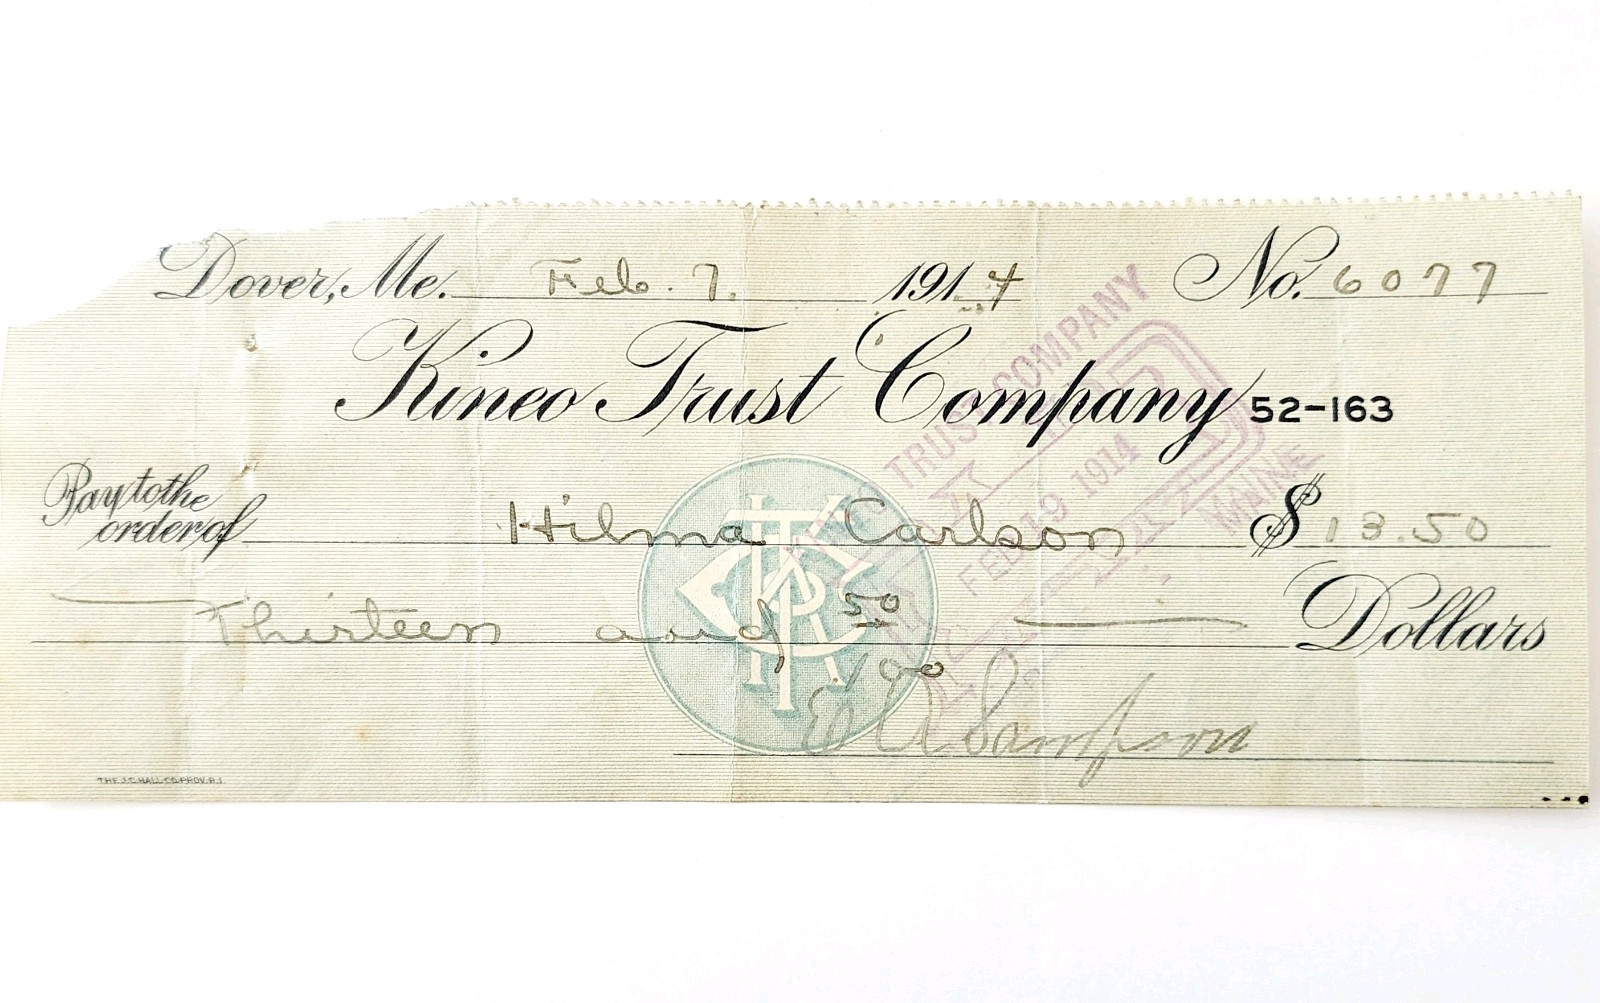 Dover, Me. Feb. 7. 1914 No. 6077
Kineo Trust Company 52-163
Pay to the
order of Hilma Carlson $ 13.50
Thirteen and 50/100 Dollars
E A Sampson
TRUST COMPANY
PAID
FEB 19 1914
MAINE
KTCo
THE J.C. HALL CO. PROV. R.I.